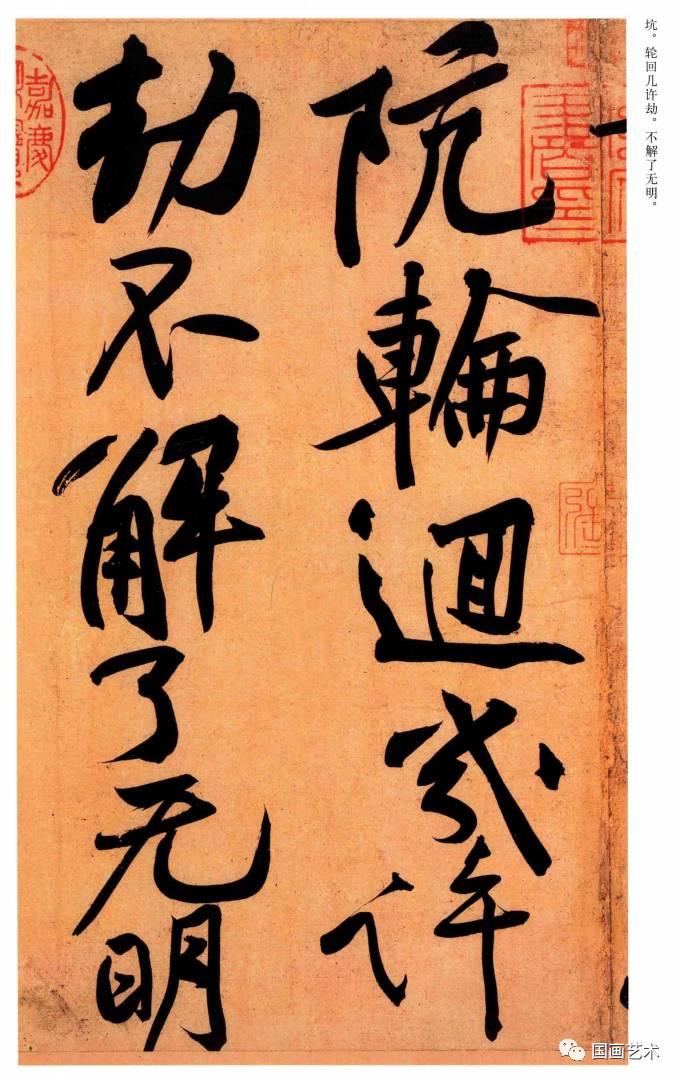 坑。轮回几许劫。不解了无明。
阬輪迴幾許
劫不解了无明
嘉慶
国画艺术